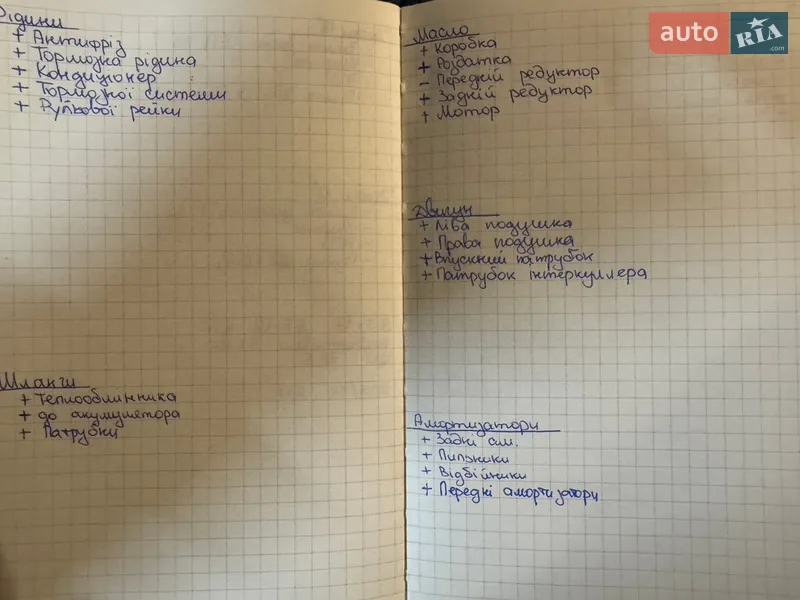 Рідини
+ Антифріз
+ Тормозна рідина
+ Кондиціонер
+ Тормозної системи
+ Рульової рейки
Шланги
+ Теплообмінника
+ до акумулятора
+ Патрубки
Масло
+ Коробка
+ Роздатка
- Передній редуктор
+ Задній редуктор
+ Мотор
Двигун
+ Ліва подушка
+ Права подушка
+ Впускний патрубок
+ Патрубок інтеркуллера
Амортизатори
+ Задні ам.
+ Пильники
+ Відбійники
+ Передні амортизатори
auto RIA
.com